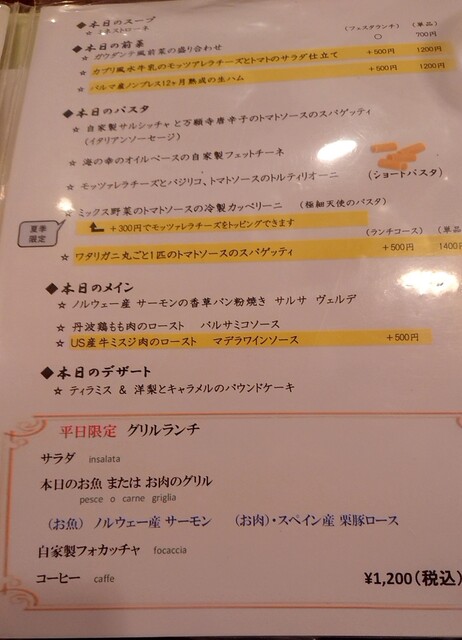 ◆本日のスープ
(フェスタランチ) (単品)
☆ ミネストローネ ○ 700円
◆本日の前菜
☆ ガウダンテ風前菜の盛り合わせ +500円 1200円
☆ カプリ風水牛乳のモッツァレラチーズとトマトのサラダ仕立て +500円 1200円
☆ パルマ産ノンプレス12ヶ月熟成の生ハム
◆本日のパスタ
☆ 自家製サルシッチャと万願寺唐辛子のトマトソースのスパゲッティ
(イタリアンソーセージ)
☆ 海の幸のオイルベースの自家製フェットチーネ
☆ モッツァレラチーズとバジリコ、トマトソースのトルティリオーニ (ショートパスタ)
☆ ミックス野菜のトマトソースの冷製カッペリーニ (極細天使のパスタ)
夏季
限定
+300円でモッツァレラチーズをトッピングできます
(ランチコース) (単品
☆ ワタリガニ丸ごと1匹のトマトソースのスパゲッティ +500円 1400円
◆本日のメイン
☆ ノルウェー産 サーモンの香草パン粉焼き サルサ ヴェルデ
☆ 丹波鶏もも肉のロースト バルサミコソース
☆ US産牛ミスジ肉のロースト マデラワインソース +500円
◆本日のデザート
☆ ティラミス & 洋梨とキャラメルのパウンドケーキ
平日限定 グリルランチ
サラダ insalata
本日のお魚 または お肉のグリル
pesce o carne griglia
(お魚) ノルウェー産 サーモン (お肉)・スペイン産 栗豚ロース
自家製フォカッチャ focaccia
コーヒー caffe ¥1,200(税込)